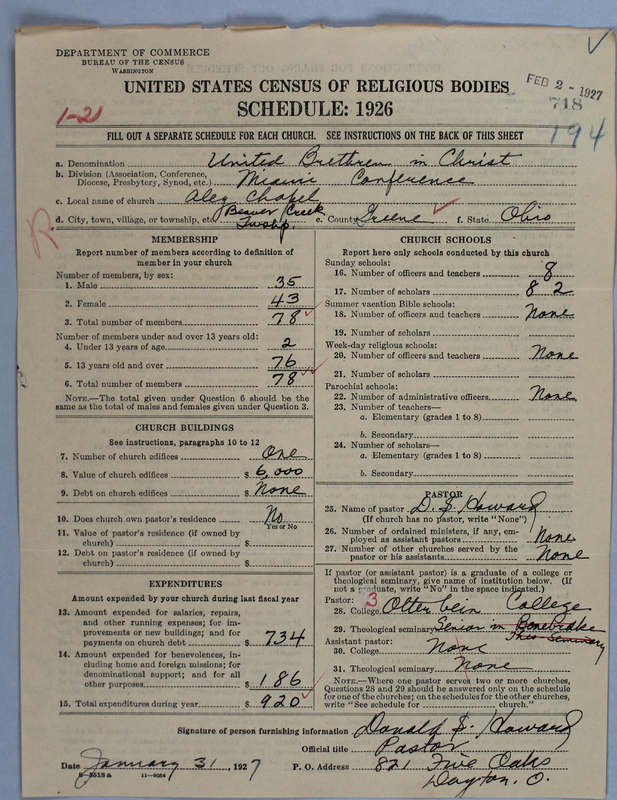 DEPARTMENT OF COMMERCE
BUREAU OF THE CENSUS
WASHINGTON
UNITED STATES CENSUS OF RELIGIOUS BODIES
SCHEDULE: 1926
FEB 2 - 1927
718
194
1-21
FILL OUT A SEPARATE SCHEDULE FOR EACH CHURCH. SEE INSTRUCTIONS ON THE BACK OF THIS SHEET
a. Denomination United Brethren in Christ
b. Division (Association, Conference, Diocese, Presbytery, Synod, etc.) Miami Conference
c. Local name of church Aley Chapel
d. City, town, village, or township, etc. Beaver Creek Twshp. e. County Greene f. State Ohio
R
MEMBERSHIP
Report number of members according to definition of member in your church
Number of members, by sex:
1. Male 35
2. Female 43
3. Total number of members 78
Number of members under and over 13 years old:
4. Under 13 years of age 2
5. 13 years old and over 76
6. Total number of members 78
NOTE.—The total given under Question 6 should be the same as the total of males and females given under Question 3.
CHURCH BUILDINGS
See instructions, paragraphs 10 to 12
7. Number of church edifices One
8. Value of church edifices $ 6,000
9. Debt on church edifices $ None
10. Does church own pastor's residence No
Yes or No
11. Value of pastor's residence (if owned by church) $
12. Debt on pastor's residence (if owned by church) $
EXPENDITURES
Amount expended by your church during last fiscal year
13. Amount expended for salaries, repairs, and other running expenses; for improvements or new buildings; and for payments on church debt $ 734
14. Amount expended for benevolences, including home and foreign missions; for denominational support; and for all other purposes $ 186
15. Total expenditures during year $ 920
CHURCH SCHOOLS
Report here only schools conducted by this church
Sunday schools:
16. Number of officers and teachers 8
17. Number of scholars 82
Summer vacation Bible schools:
18. Number of officers and teachers None
19. Number of scholars
Week-day religious schools:
20. Number of officers and teachers None
21. Number of scholars
Parochial schools:
22. Number of administrative officers None
23. Number of teachers—
a. Elementary (grades 1 to 8)
b. Secondary
24. Number of scholars—
a. Elementary (grades 1 to 8)
b. Secondary
PASTOR
25. Name of pastor D. S. Howard
(If church has no pastor, write "None")
26. Number of ordained ministers, if any, employed as assistant pastors None
27. Number of other churches served by the pastor or his assistants None
If pastor (or assistant pastor) is a graduate of a college or theological seminary, give name of institution below. (If not a graduate, write "No" in the space indicated.)
Pastor: 3
28. College Otterbein College
29. Theological seminary Senior in Bonebrake Theo. Seminary
Assistant pastor:
30. College None
31. Theological seminary None
NOTE.—Where one pastor served two or more churches, Questions 28 and 29 should be answered only on the schedule for one of the churches; on the schedules for the other churches, write "See schedule for ______ church."
Signature of person furnishing information Donald S. Howard
Official title Pastor
Date January 31, 1927 P. O. Address 821 Five Oaks
Dayton, O.
8-3518a 11-9054